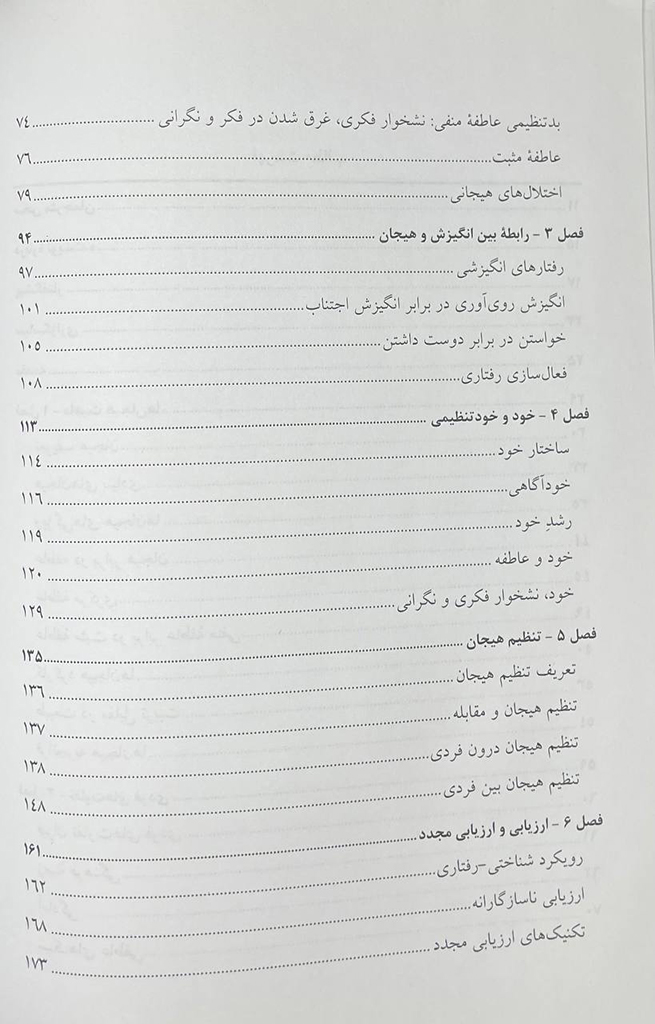 بدتنظیمی عاطفهٔ منفی: نشخوار فکری، غرق شدن در فکر و نگرانی ............ ۷٤
عاطفهٔ مثبت ............ ۷٦
اختلال‌های هیجانی ............ ۷۹
فصل ۳ - رابطهٔ بین انگیزش و هیجان ............ ۹۴
رفتارهای انگیزشی ............ ۹۷
انگیزش روی‌آوری در برابر انگیزش اجتناب ............ ۱۰۱
خواستن در برابر دوست داشتن ............ ۱۰۵
فعال‌سازی رفتاری ............ ۱۰۸
فصل ۴ - خود و خودتنظیمی ............ ۱۱۳
ساختار خود ............ ۱۱٤
خودآگاهی ............ ۱۱٦
رشدِ خود ............ ۱۱۹
خود و عاطفه ............ ۱۲۰
خود، نشخوار فکری و نگرانی ............ ۱۲۹
فصل ۵ - تنظیم هیجان ............ ۱۳۵
تعریف تنظیم هیجان ............ ۱۳٦
تنظیم هیجان و مقابله ............ ۱۳۷
تنظیم هیجان درون فردی ............ ۱۳۸
تنظیم هیجان بین فردی ............ ۱٤۸
فصل ۶ - ارزیابی و ارزیابی مجدد ............ ۱۶۱
رویکرد شناختی-رفتاری ............ ۱٦۲
ارزیابی ناسازگارانه ............ ۱٦۸
تکنیک‌های ارزیابی مجدد ............ ۱۷۳